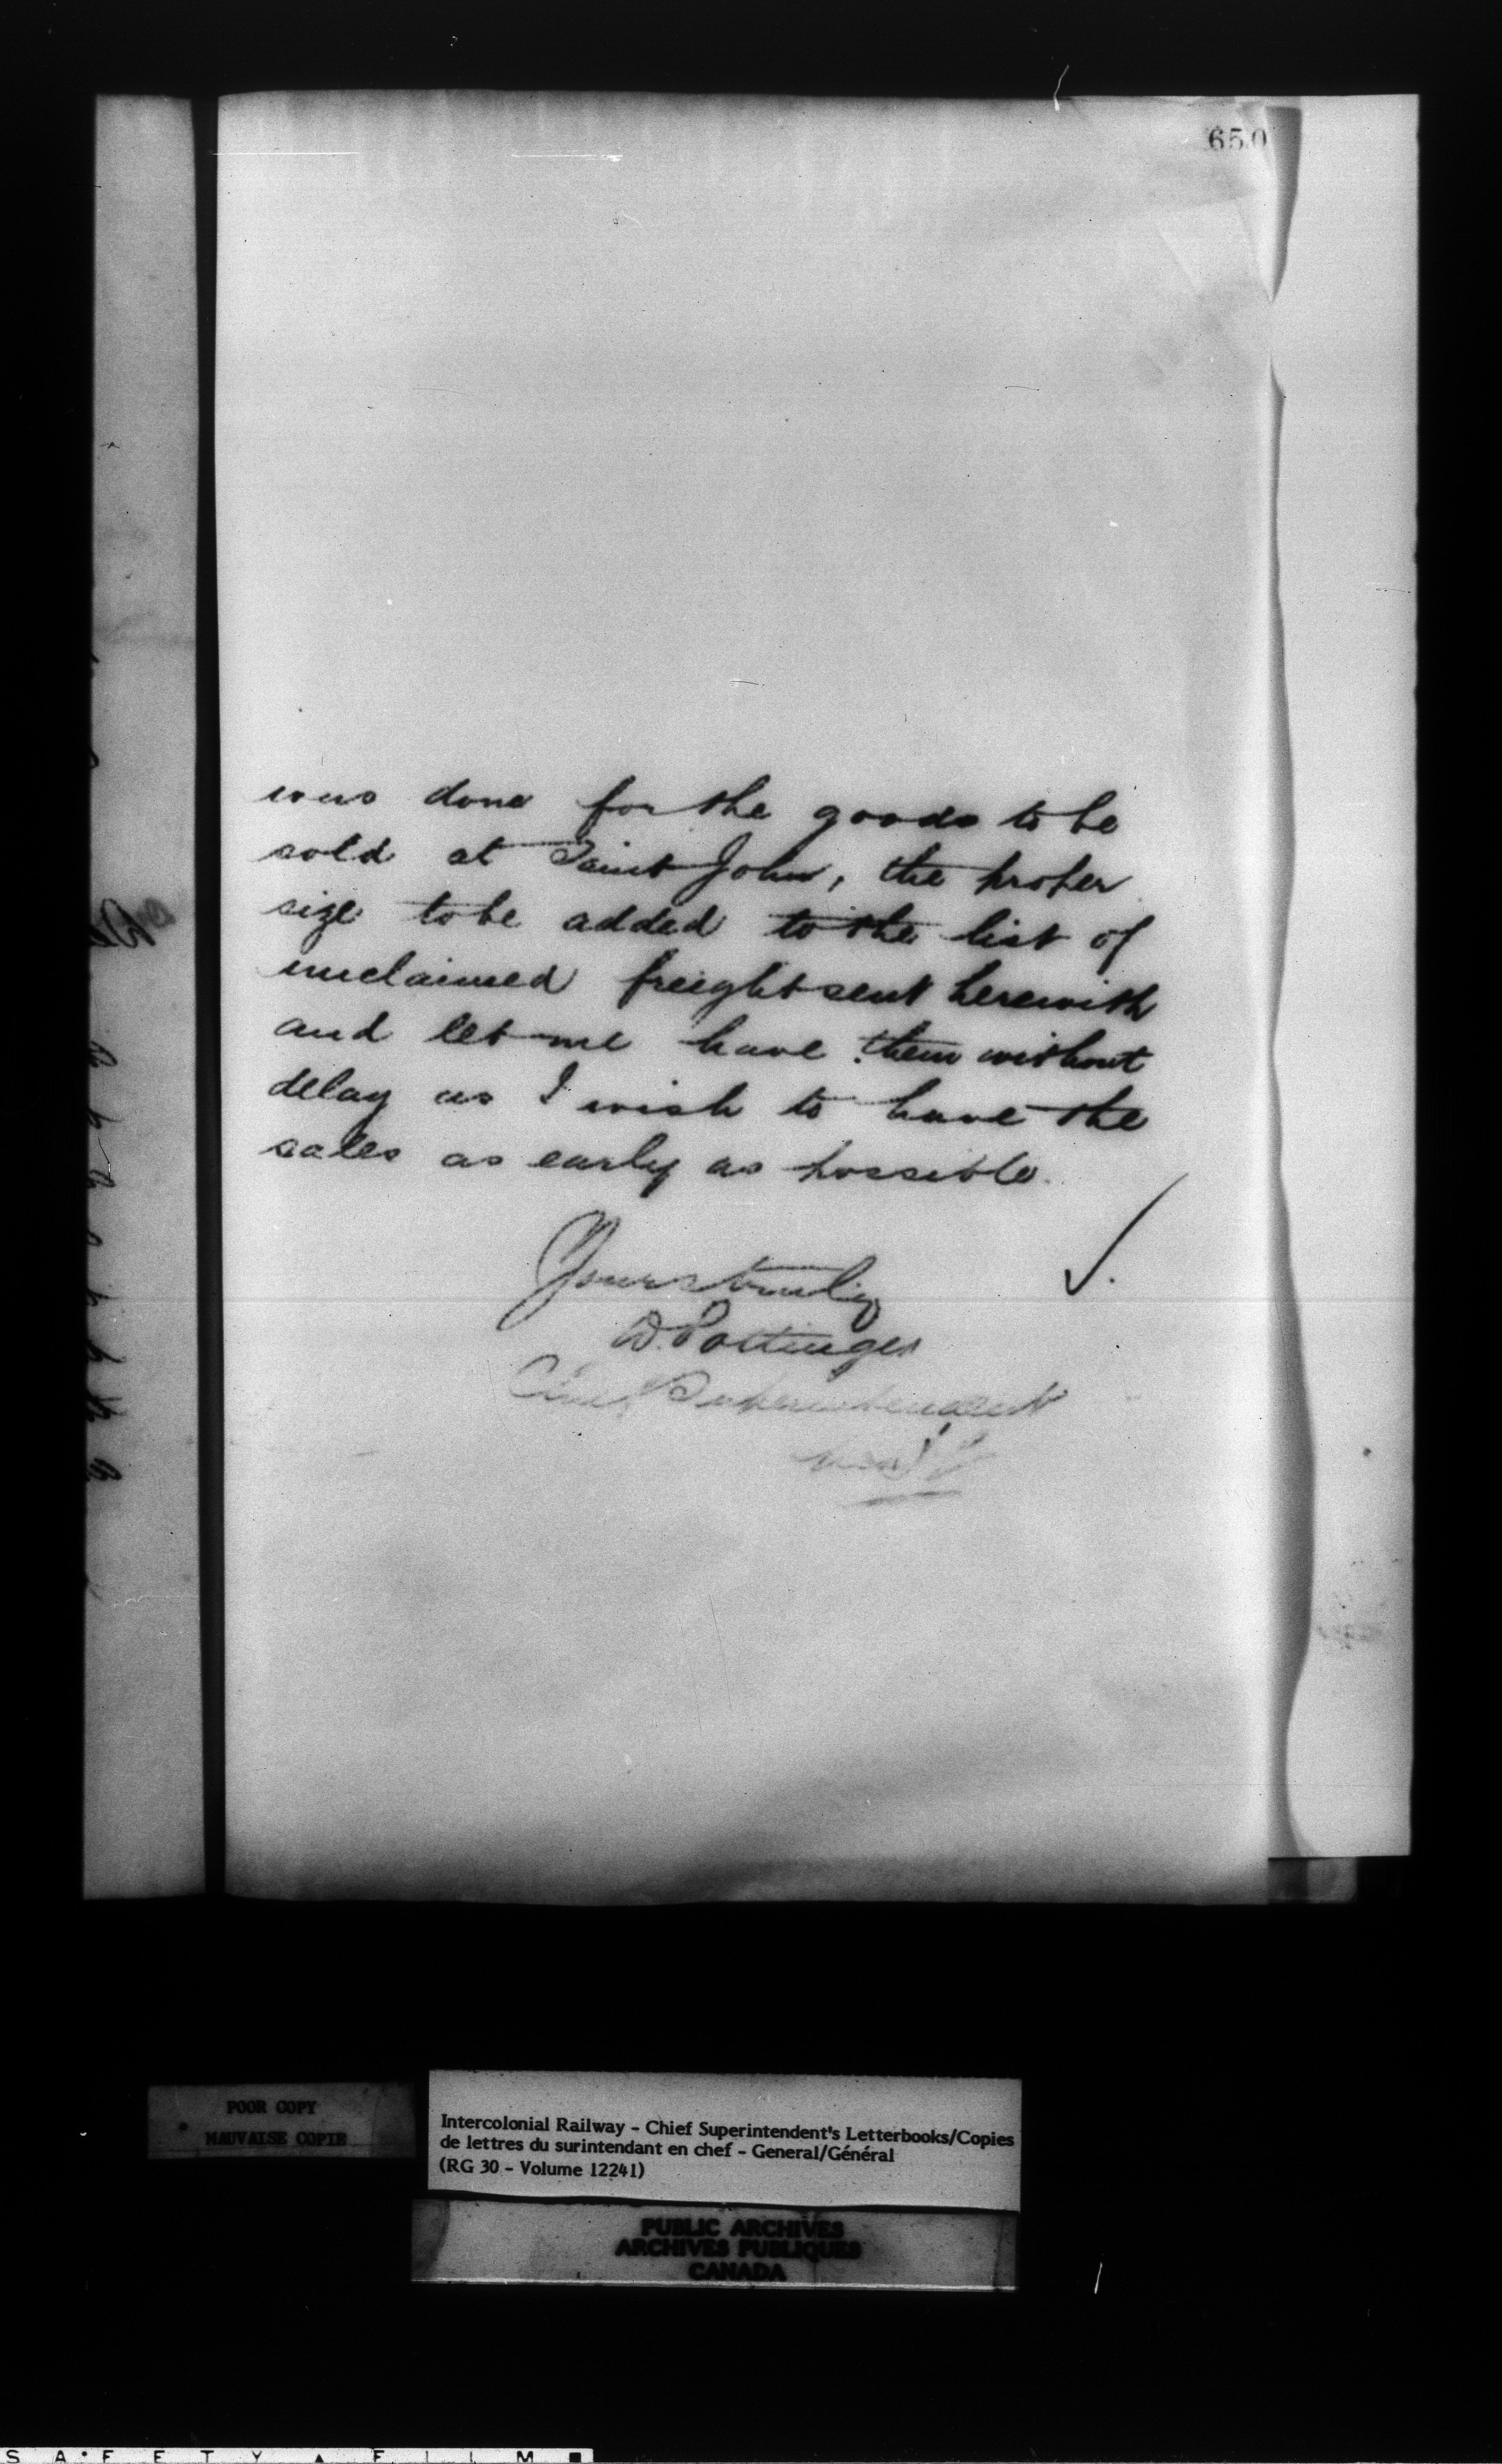 650
was done for the goods to be
sold at Saint John, the proper
size to be added to the list of
unclaimed freight sent herewith
and let me have them without
delay as I wish to have the
sales as early as possible.
Yours truly
D. Pottinger
Chief Superintendent
POOR COPY
MAUVAISE COPIE
Intercolonial Railway - Chief Superintendent's Letterbooks/Copies
de lettres du surintendant en chef - General/Général
(RG 30 - Volume 12241)
PUBLIC ARCHIVES
ARCHIVES PUBLIQUES
CANADA
SAFETY FILM